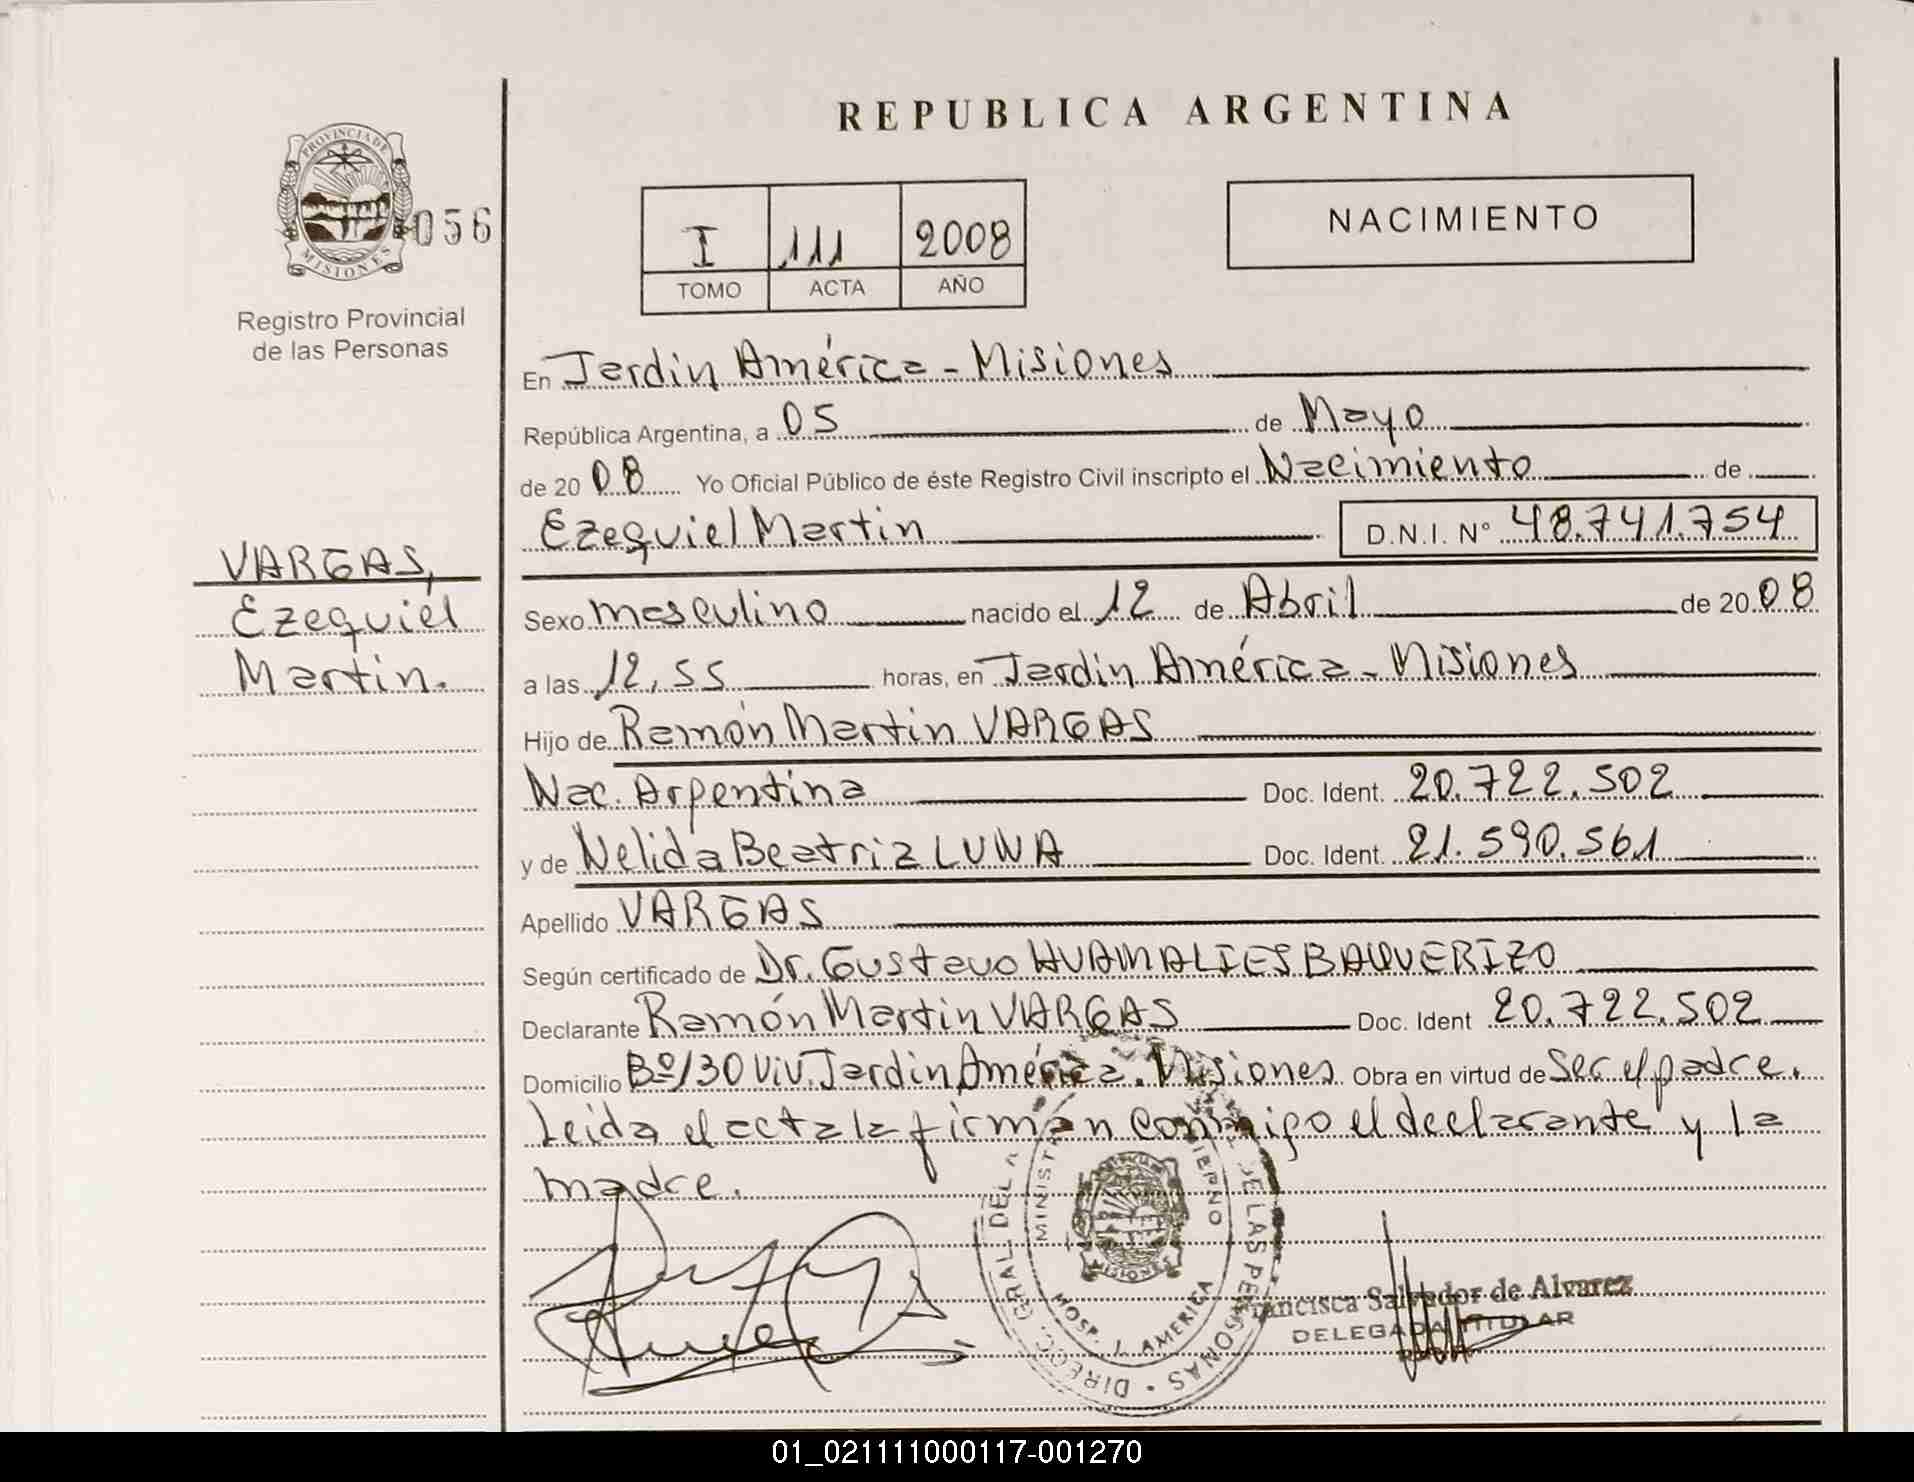 REPUBLICA ARGENTINA
PROVINCIA DE
MISIONES
056
Registro Provincial
de las Personas
I 111 2008
TOMO ACTA AÑO
NACIMIENTO
En Jardin América - Misiones
República Argentina, a 05 de Mayo
de 20 08 Yo Oficial Público de éste Registro Civil inscripto el Nacimiento de
Ezequiel Martin D.N.I. Nº 48.741.754
VARGAS,
Ezequiel
Martin.
Sexo masculino nacido el 12 de Abril de 20 08
a las 12,55 horas, en Jardin América - Misiones
Hijo de Ramón Martin VARGAS
Nac. Argentina Doc. Ident. 20.722.502
y de Nelida Beatriz LUNA Doc. Ident. 21.590.561
Apellido VARGAS
Según certificado de Dr. Gustavo HUAMALIES BAQUERIZO
Declarante Ramón Martin VARGAS Doc. Ident 20.722.502
Domicilio Bº/30 Viv. Jardin América. Misiones Obra en virtud de Ser el padre.
Leida el acta la firman conmigo el declarante y la
madre.
DIRECC. GRAL. DEL DE LAS PERSONAS
HOSP. J. AMERICA
MISIONES
Francisca Salvador de Alvarez
DELEGADA TITULAR
01_021111000117-001270